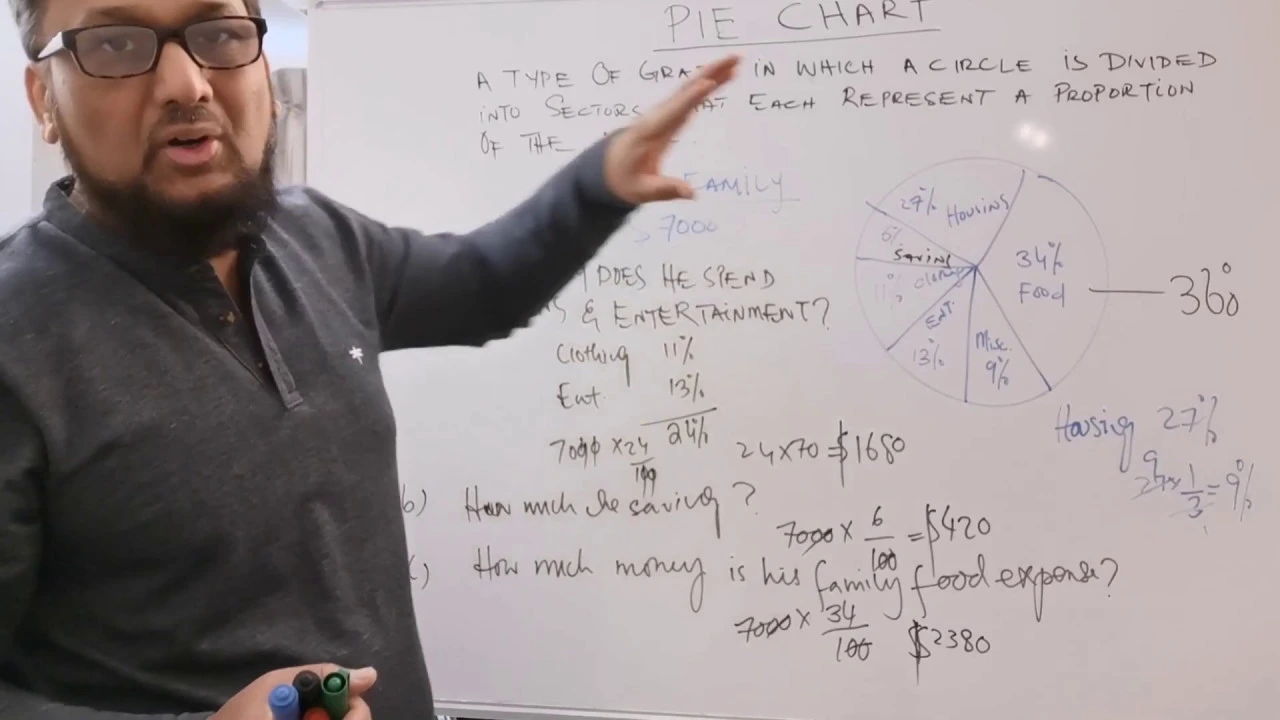 PIE CHART
A TYPE OF GRA IN WHICH A CIRCLE IS DIVIDED
INTO SECTORS AT EACH REPRESENT A PROPORTION
OF THE
FAMILY
$ 7000
DOES HE SPEND
& ENTERTAINMENT?
Clothing 11%
Ent. 13%
24%
7000 × 24/100
24×70 = $1680
b) How much he saving?
7000 × 6/100 = $420
How much money is his family food expense?
7000 × 34/100 $2380
27% HOUSING
6% SAVING
11%
ENT. 13%
Misc. 9%
34% Food
360
Housing 27%
27 × 1/3 = 9%
9